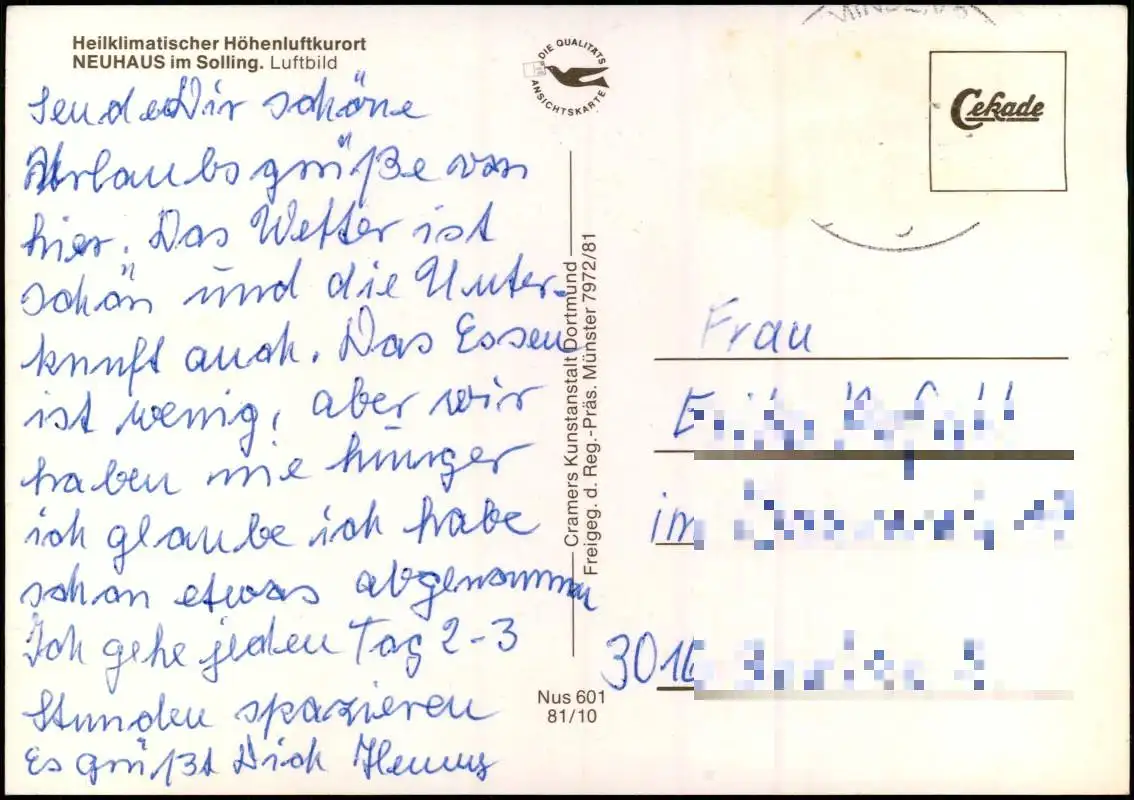 Heilklimatischer Höhenluftkurort
NEUHAUS im Solling. Luftbild
Sende Dir schöne
Urlaubsgrüße von
hier. Das Wetter ist
schön und die Unter-
kunft auch. Das Essen
ist wenig, aber wir
haben nie hunger
ich glaube ich habe
schon etwas abgenommen
Ich gehe jeden Tag 2-3
Stunden spazieren
Es grüßt Dich Henny
DIE QUALITÄTS
ANSICHTSKARTE
Cramers Kunstanstalt Dortmund
Freigeg. d. Reg.-Präs. Münster 7972/81
Nus 601
81/10
Cekade
Frau
im